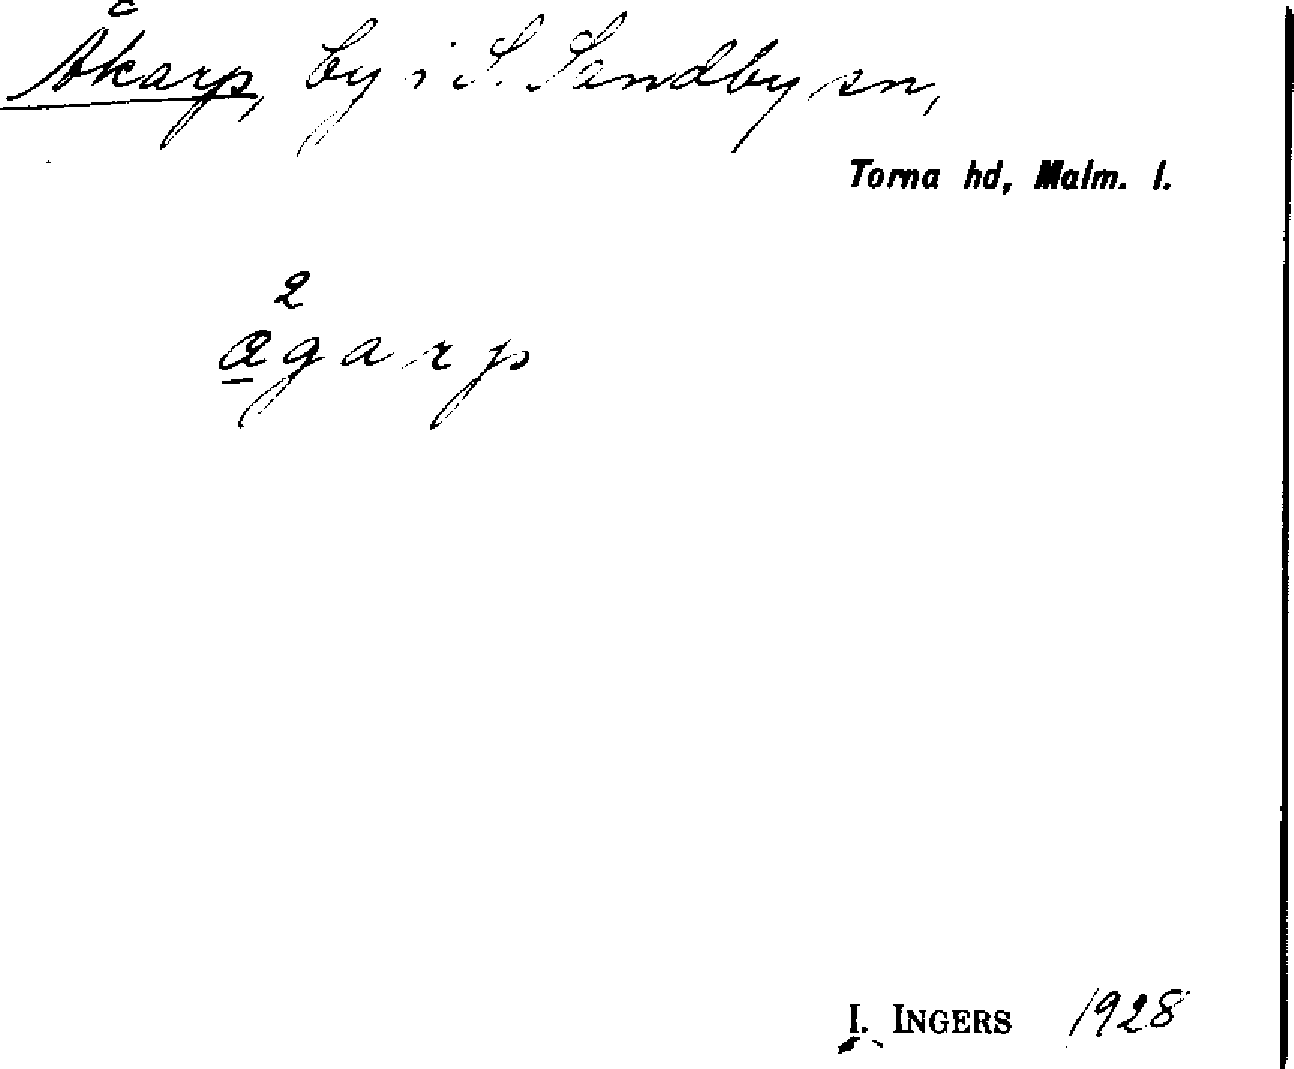 Åkarp, by i S. Sandby sn,
Torna hd, Malm. l.
2
a̲garp
I. INGERS 1928